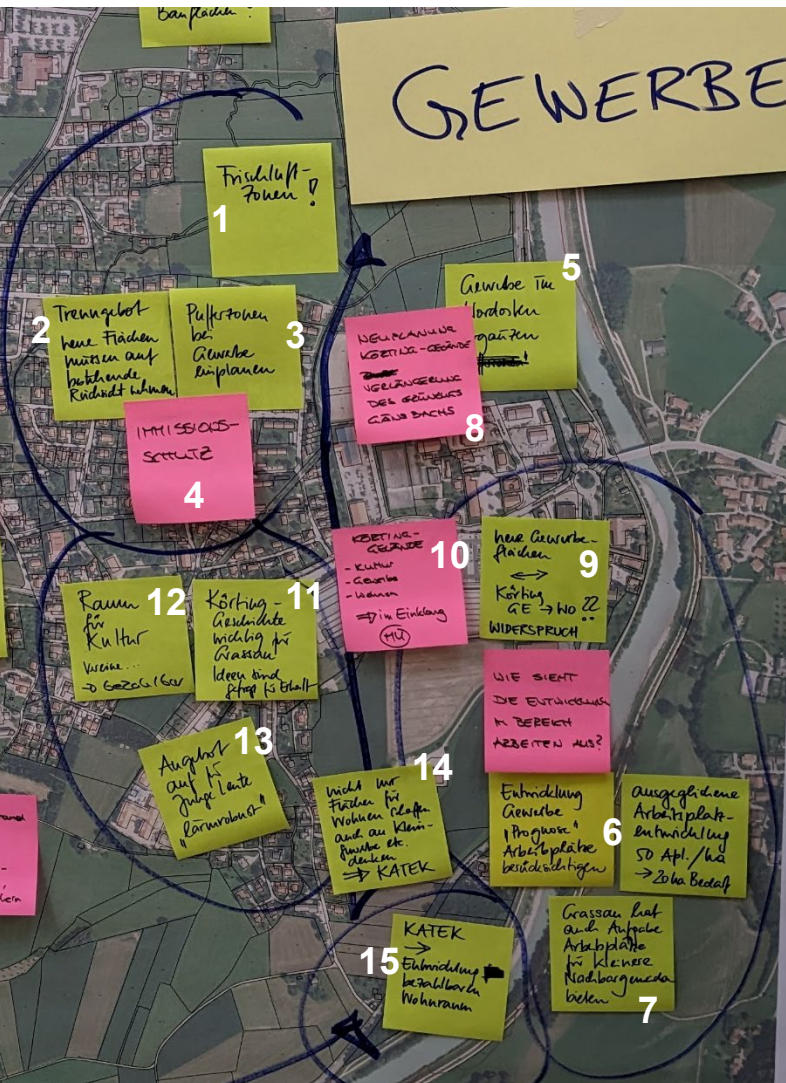 Bauflächen!
GEWERBE
Frischluft-
Zonen!
1
2
Trenngebot
neue Flächen
müssen auf
bestehende
Rücksicht nehmen
Pufferzonen
bei
Gewerbe
einplanen
3
IMMISSIONS-
SCHUTZ
4
5
Gewerbe im
Nordosten
ergänzen
NEUPLANUNG
KÖRTING-GELÄNDE
VERLÄNGERUNG
DES GRÜNZUGS
GÄNSBACHS
8
KÖRTING-
GELÄNDE
- Kultur
- Gewerbe
- Wohnen
⇒ im Einklang
MU
10
neue Gewerbe-
flächen
↔
Körting
GE → NO ??
WIDERSPRUCH
9
Raum
für
Kultur
Vereine...
→ bezahlbar
12
Körting-
Geschichte
wichtig für
Grassau
Ideen sind
gefragt für Erhalt
11
WIE SIEHT
DIE ENTWICKLUNG
IM BEREICH
ARBEITEN AUS?
Angebot
auch für
junge Leute
"lärmrobust"
13
nicht nur
Flächen für
Wohnen schaffen
auch an Klein-
gewerbe etc.
denken
⇒ KATEK
14
Entwicklung
Gewerbe
"Prognose"
Arbeitsplätze
berücksichtigen
6
ausgeglichene
Arbeitsplatz-
entwicklung
50 Apl./ha
→ 20ha Bedarf
Grassau hat
auch Aufgabe
Arbeitsplätze
für kleinere
Nachbargemeinden
bieten
7
KATEK
→
Entwicklung
bezahlbaren
Wohnraum
15